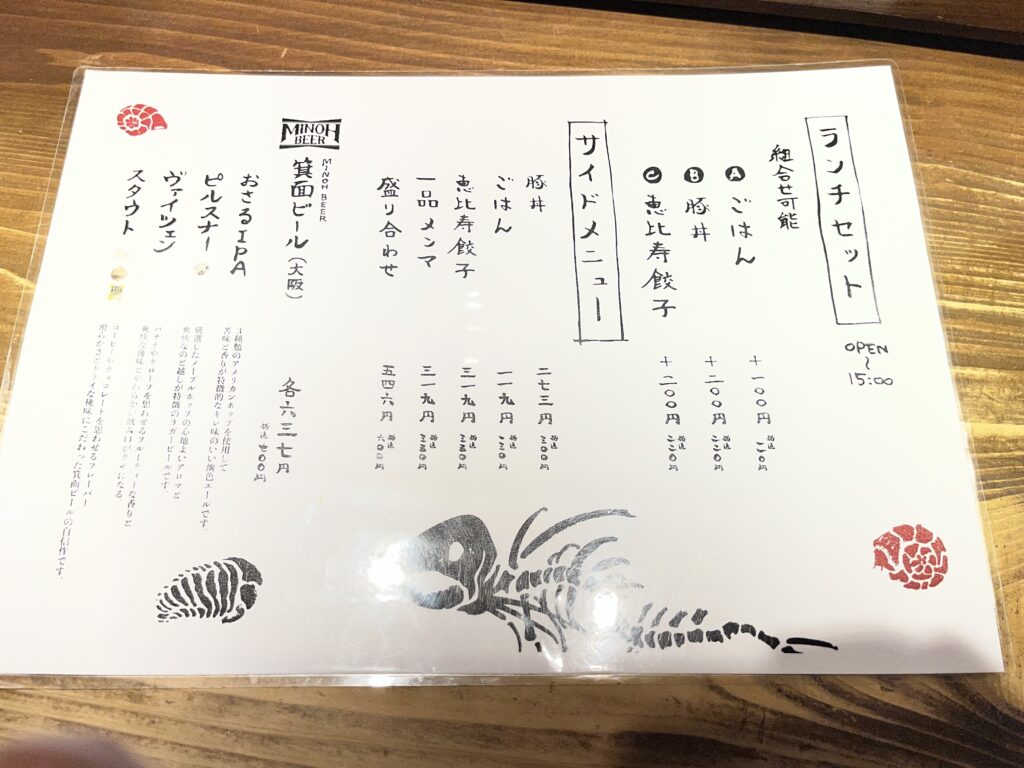 ランチセット
OPEN
〜
15:00
組合せ可能
Ⓐ ごはん
+一〇〇円
税込
Ⓑ 豚丼
+二〇〇円
税込
二二〇円
Ⓒ 恵比寿餃子
+二〇〇円
税込
二二〇円
サイドメニュー
豚丼
二七三円
税込
三〇〇円
ごはん
一一九円
税込
一三〇円
恵比寿餃子
三一九円
税込
三五〇円
一品メンマ
三一九円
税込
三五〇円
盛り合わせ
五四六円
税込
六〇〇円
MINOH
BEER
MINOH BEER
箕面ビール(大阪)
各六三七円
税込 七〇〇円
おさるIPA
3種類のアメリカンホップを使用して
苦味と香りが特徴的なキレ味のいい淡色エールです。
ピルスナー
厳選したノーブルホップの心地よいアロマと
爽快なのど越しが特徴のラガービールです。
ヴァイツェン
バナナやクローブを思わせるフルーティーな香りと
爽快な後味とやわらかい飲み口がクセになる
スタウト
コーヒーやチョコレートを思わせるフレーバー
滑らかさとドライな後味にこだわった箕面ビールの自信作です。